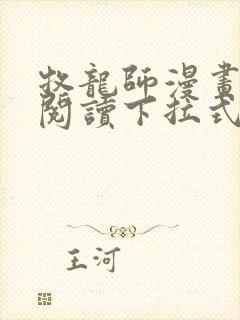 牧龍師漫畫
閱讀下拉式
王河